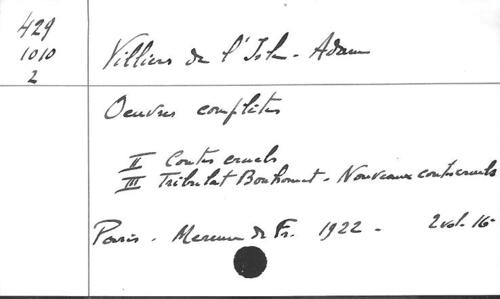 429
1010
2
Villiers de l'Isle-Adam
Oeuvres complètes
II Contes cruels
III Tribulat Bonhomet - Nouveaux contes cruels
Paris - Mercure de Fr. 1922 - 2 vol. 16°